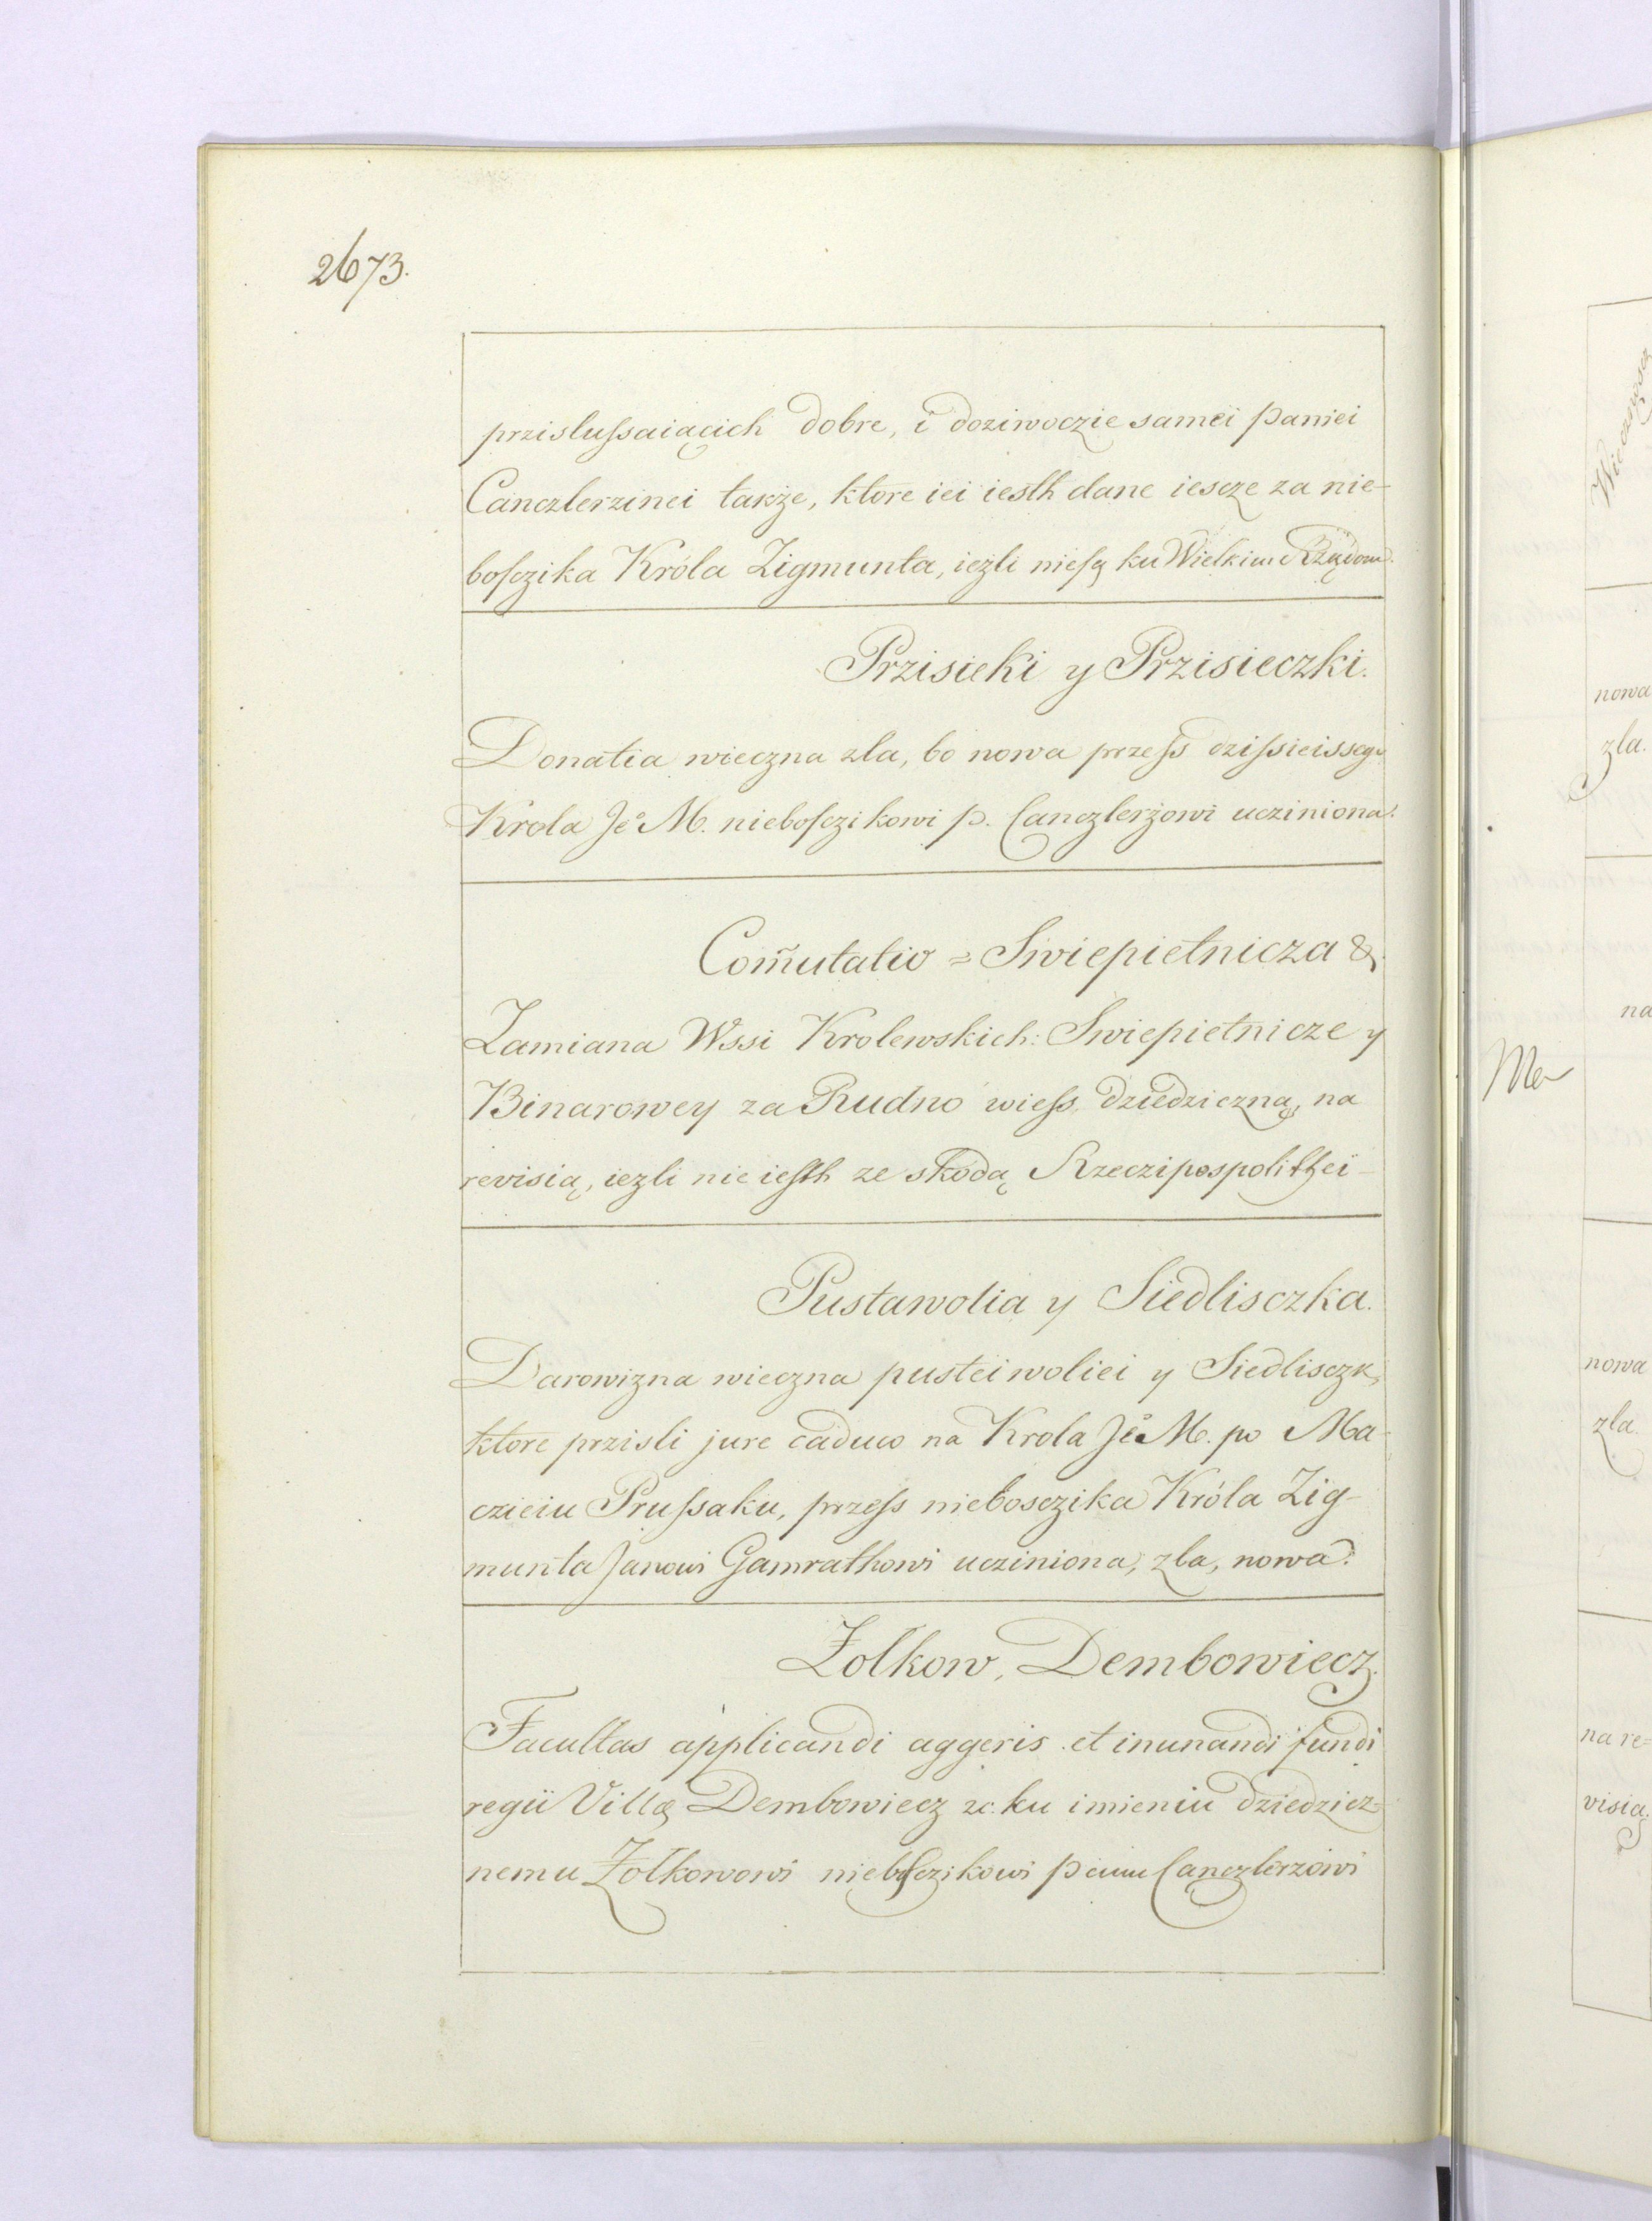 2673.
przislußaiącich dobre, i doziwoczie samei paniei
Canczlerzinei także, ktore iei iesth dane iescze za nie-
bosczika Króla Zigmunta, ieżli niesą ku Wielkim Rządom.
Przisieki y Przisieczki.
Donatia wieczna zla, bo nowa przeß dzisieissego
Krola Je° M. niebosczikowi p. Canczlerżowi ucziniona.
Com̃utatio = Swiepietnicza &.
Zamiana Wssi Krolewskich: Swiepietnicze y
Binarowey za Rudno wieß dziedziczną, na
revisią, iezli nie iesth ze skodą Rzeczipospolithei
Pustawolia y Siedlisczka.
Darowizna wieczna pustei woliei y Siedlisczk,
ktore przisli jure caduco na Krola Je° M. po Ma-
czieiu Prußaku, przeß nieboszczika Króla Zig-
munta Janowi Gamrathowi ucziniona, zla, nowa.
Żolkow, Dembowiecz.
Facultas applicandi aggeris et inunandi fundi
regii Villæ Dembowiecz &c. ku imieniu dziedzicz=
nemu Żolkowowi niebosczikowi panu Canczlerzowi
nowa
zla.
na
Me
nowa
zla.
na re=
visią.